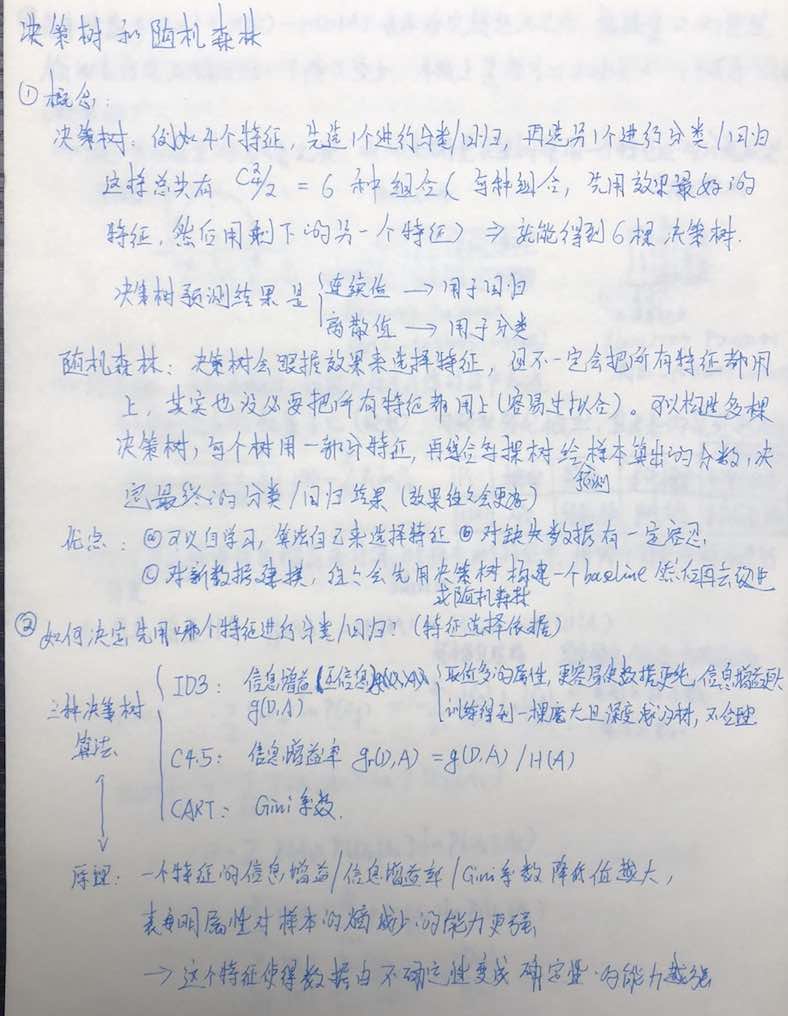 决策树和随机森林
① 概念:
决策树: 例如4个特征, 先选1个进行分类/回归, 再选另1个进行分类/回归
这样总共有 C²₄/2 = 6 种组合( 每种组合, 先用效果最好的
特征, 然后用剩下的另一个特征) ⇒ 就能得到6棵决策树.
决策树预测结果是 { 连续值 → 用于回归
离散值 → 用于分类
随机森林: 决策树会跟据效果来选择特征, 但不一定会把所有特征都用
上, 其实也没必要把所有特征都用上(容易过拟合)。可以构造多棵
决策树, 每个树用一部分特征, 再综合每棵树给样本算出的分数, 决
预测
定最终的分类/回归结果 (效果往往会更好)
优点: ⓐ可以自学习, 算法自己来选择特征 ⓑ 对缺失数据有一定容忍
ⓒ 对新数据建模, 往往会先用决策树构建一个baseline 然后再去改进
或随机森林
② 如何决定先用哪个特征进行分类/回归? (特征选择依据)
三种决策树
算法
ID3: 信息增益(互信息) { 取值多的属性, 更容易使数据更纯, 信息增益更大
g(D,A) 训练得到一棵庞大且深度浅的树, 不合理
C4.5: 信息增益率 gᵣ(D,A) = g(D,A) / H(A)
CART: Gini系数.
原理: 一个特征的信息增益/信息增益率/Gini系数降低值越大,
表明属性对样本的熵减少的能力更强
→ 这个特征使得数据由不确定性变成确定性的能力越强